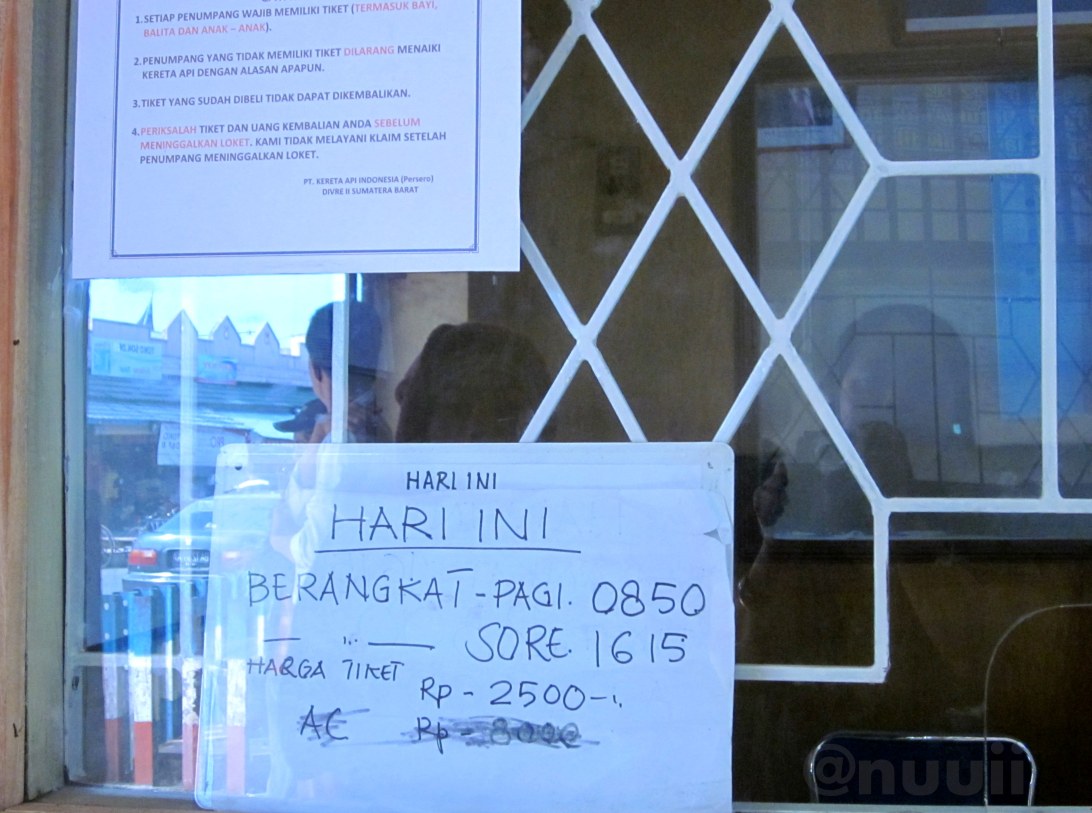 1. SETIAP PENUMPANG WAJIB MEMILIKI TIKET (TERMASUK BAYI,
BALITA DAN ANAK – ANAK).
2. PENUMPANG YANG TIDAK MEMILIKI TIKET DILARANG MENAIKI
KERETA API DENGAN ALASAN APAPUN.
3. TIKET YANG SUDAH DIBELI TIDAK DAPAT DIKEMBALIKAN.
4. PERIKSALAH TIKET DAN UANG KEMBALIAN ANDA SEBELUM
MENINGGALKAN LOKET. KAMI TIDAK MELAYANI KLAIM SETELAH
PENUMPANG MENINGGALKAN LOKET.
PT. KERETA API INDONESIA (Persero)
DIVRE II SUMATERA BARAT
HARI INI
HARI INI
BERANGKAT - PAGI. 0850
— ״ — SORE. 1615
HARGA TIKET
Rp - 2500-
AC Rp - 8000
@nuuii